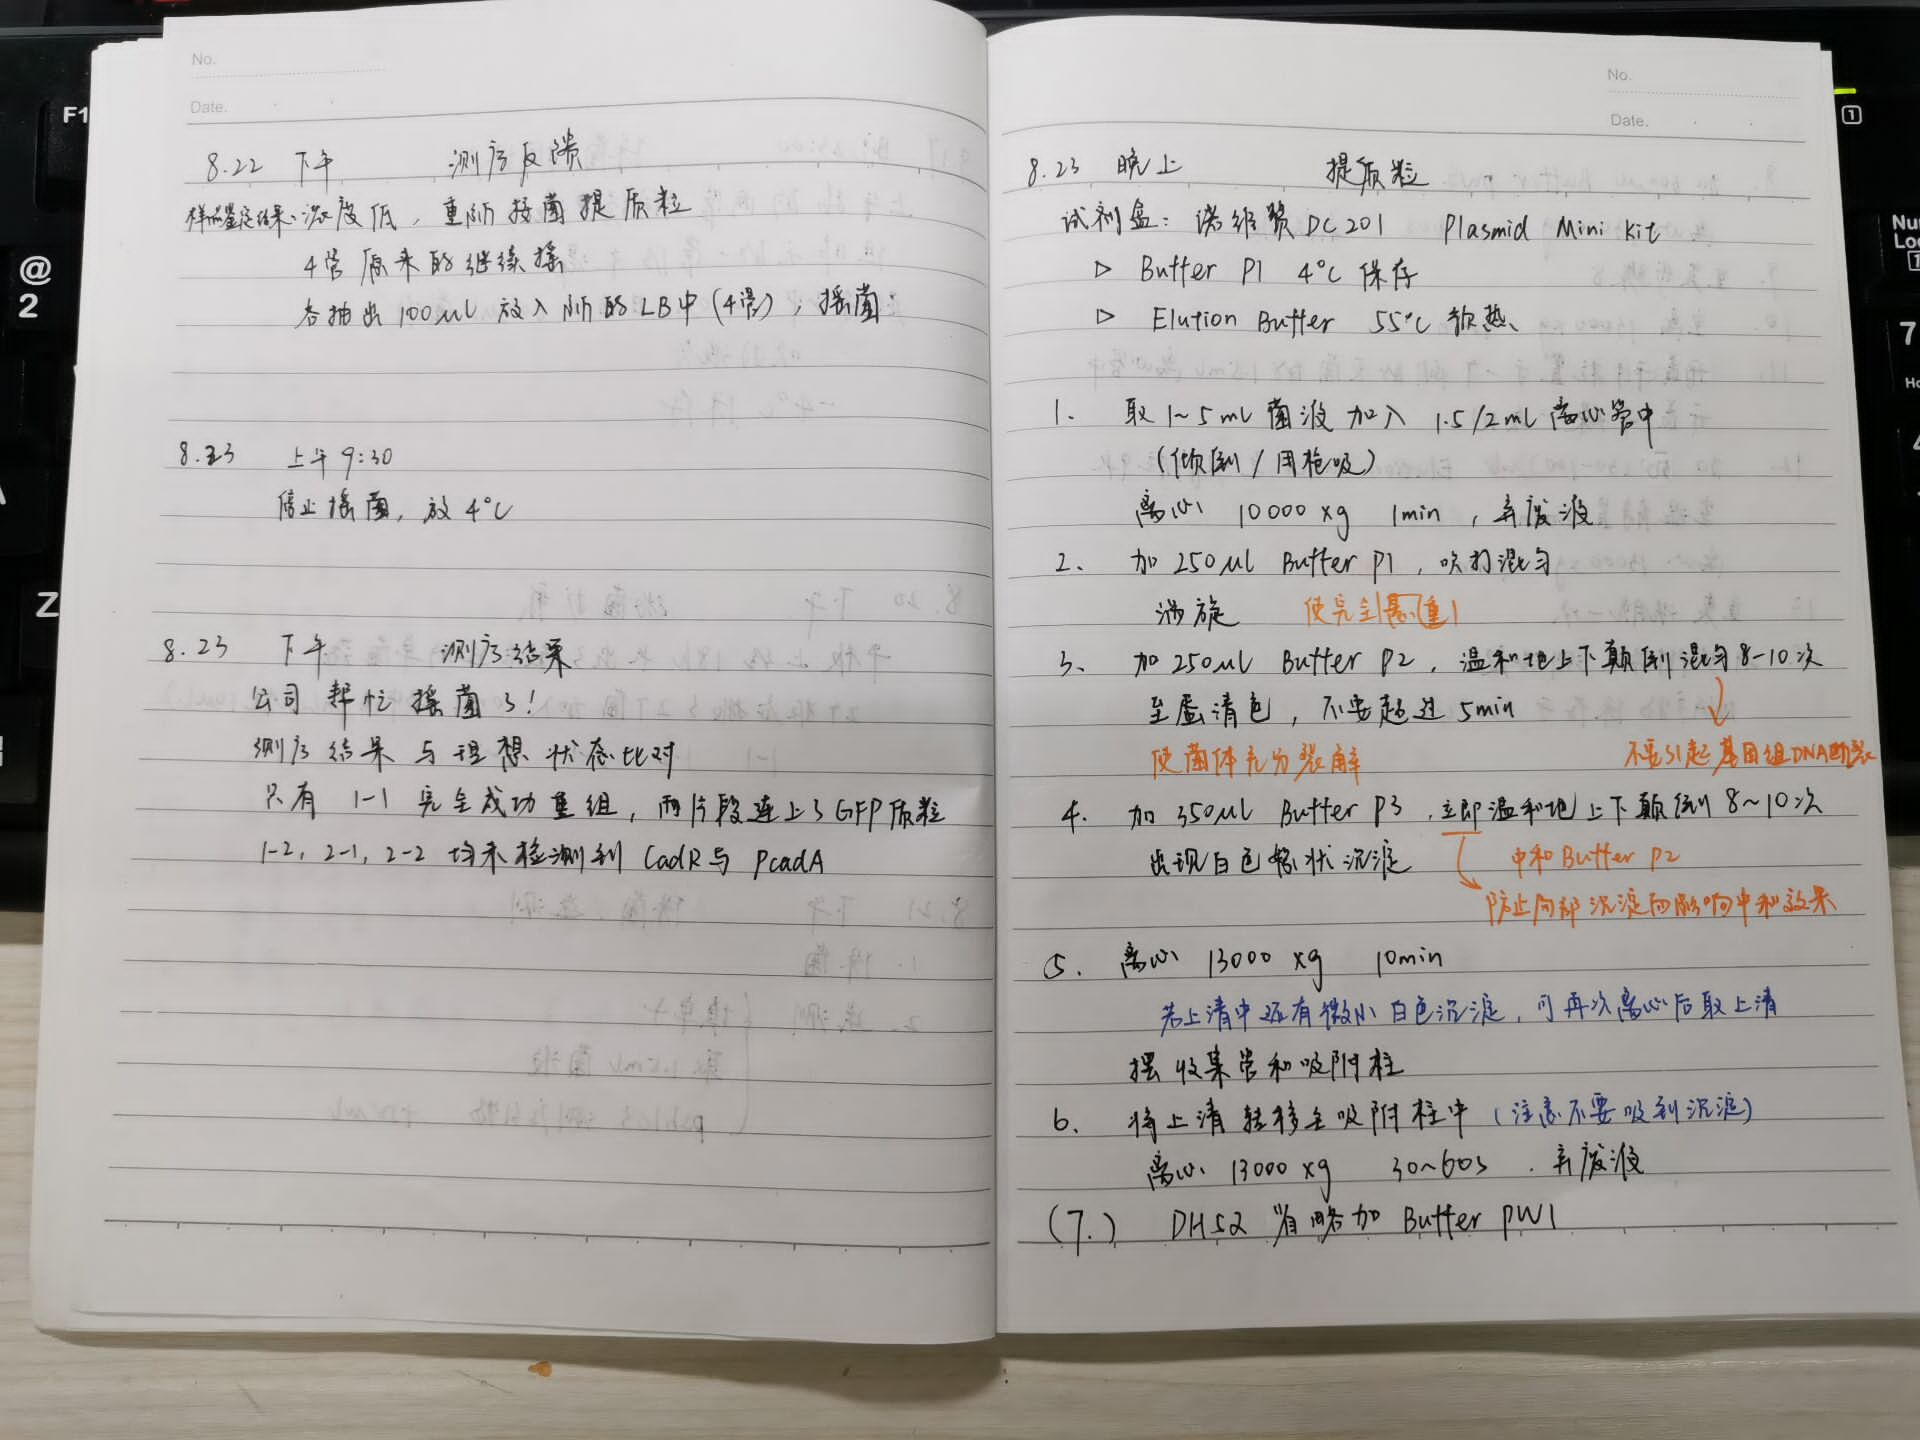 No.
Date.
8.22 下午 测序反馈
样品鉴定结果:浓度低,重新接菌提质粒
4管原来的继续摇
各抽出100μl 放入新的LB中(4管),摇菌
8.23 上午9:30
停止摇菌,放4°C
8.23 下午 测序结果
公司帮忙摇菌了!
测序结果与理想状态比对
只有 1-1 完全成功重组,两片段连上了GFP质粒
1-2, 2-1, 2-2 均未检测到 CadR与 PcadA
No.
Date.
8.23 晚上 提质粒
试剂盒:诺维赞DC201 Plasmid Mini Kit
▷ Buffer P1 4°C 保存
▷ Elution Buffer 55°C 预热
1. 取1~5mL菌液加入 1.5/2mL离心管中
(倾倒/用枪吸)
离心 10000xg 1min,弃废液
2. 加250μl Buffer P1,吹打混匀
涡旋 使完全悬重
3. 加250μl Buffer P2,温和地上下颠倒混匀8-10次
至蛋清色,不要超过5min
使菌体充分裂解 不要引起基因组DNA断裂
4. 加350μl Buffer P3,立即温和地上下颠倒8~10次
出现白色絮状沉淀 中和Buffer P2
防止局部沉淀而影响中和效果
5. 离心 13000xg 10min
若上清中还有微小白色沉淀,可再次离心后取上清
摆收集管和吸附柱
6. 将上清转移至吸附柱中(注意不要吸到沉淀)
离心 13000xg 30~60s.弃废液
(7.) DH5α 省略加 Buffer PW1
F1
@
2
Z
1
7